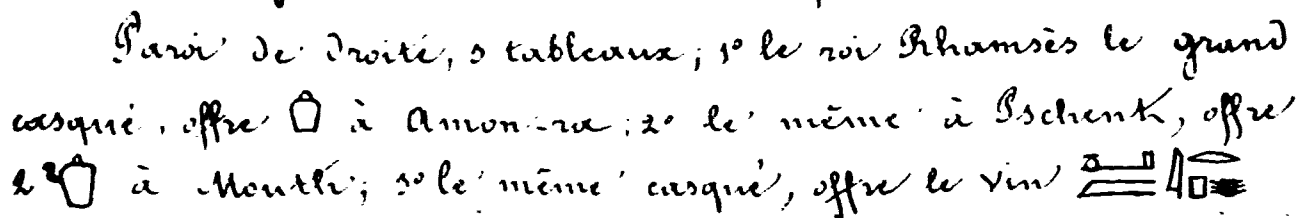 Paroi de droite, 3 tableaux; 1° le roi Rhamsès le grand
casqué, offre à Amon-ra; 2° le même à Pschent, offre
2 à Mouth; 3° le même casqué, offre le vin